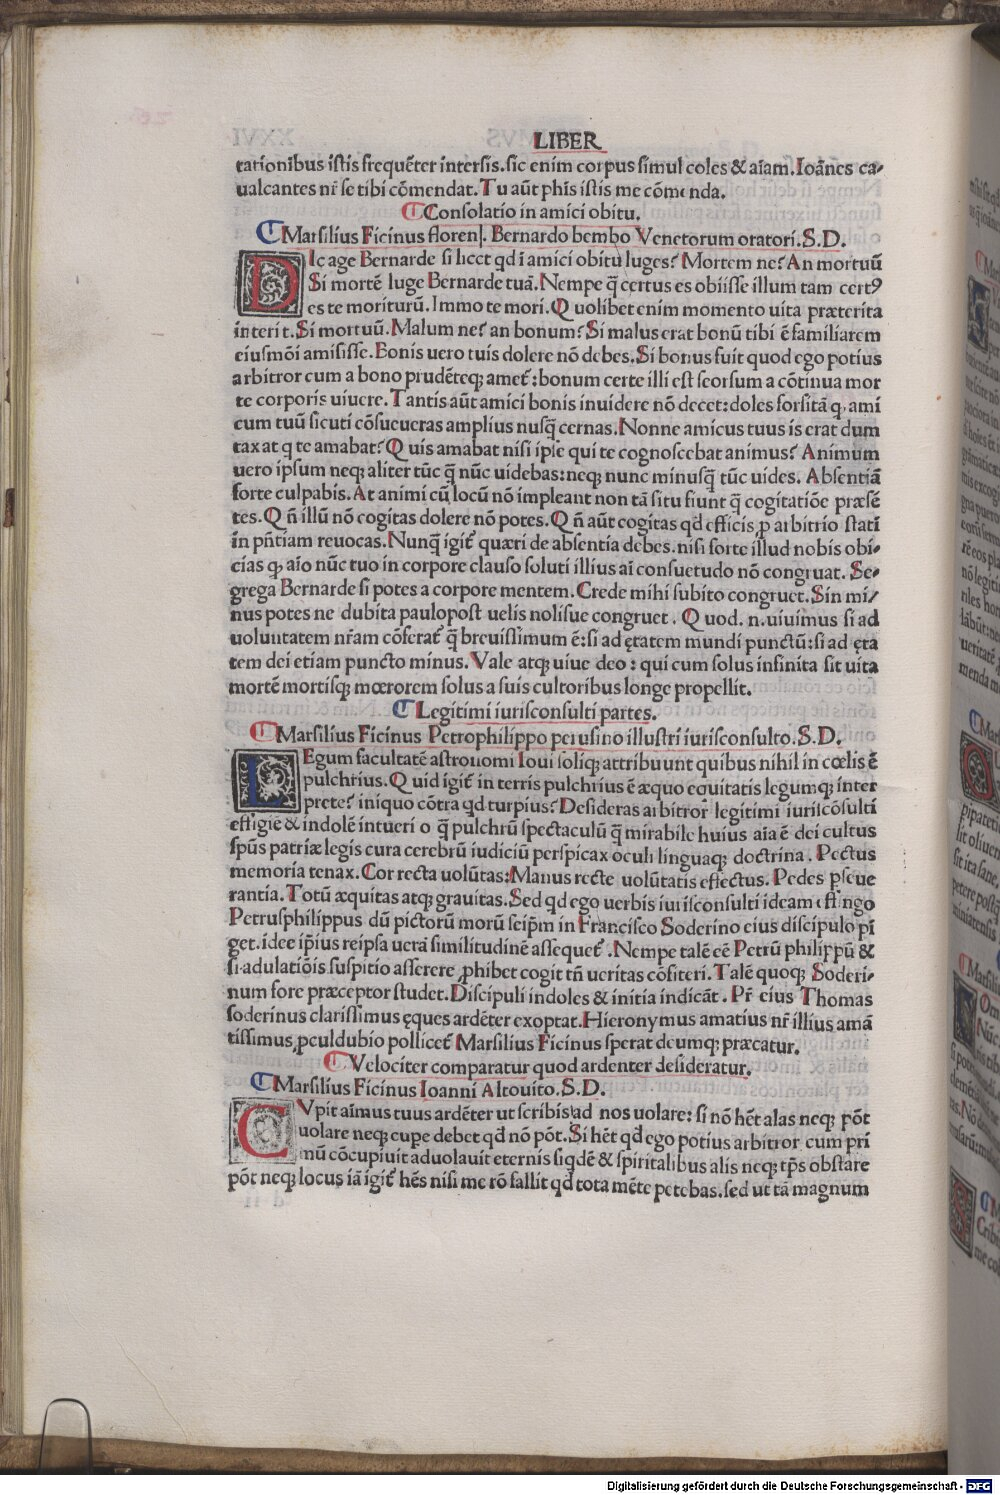 LIBER
tationibus istis frequēter intersis.sic enim corpus simul coles & aīam.Ioānes ca-
ualcantes nr̄ se tibi cōmendat.Tu aūt phis istis me cōmenda.
Consolatio in amici obitu.
Marsilius Ficinus floren. Bernardo bembo Venetorum oratori.S.D.
DIc age Bernarde si licet qd ī amici obitu luges? Mortem ne? An mortuū
Si mortē luge Bernarde tuā.Nempe q̄ certus es obiisse illum tam certꝰ
es te moriturū.Immo te mori.Quolibet enim momento uita præterita
interit.Si mortuū.Malum ne? an bonum? Si malus erat bonū tibi ē familiarem
eiusmōi amisisse.Bonis uero tuis dolere nō debes.Si bonus fuit quod ego potius
arbitror cum a bono prudēteqꝫ amet᷑:bonum certe illi est seorsum a cōtinua mor
te corporis uiuere.Tantis aūt amici bonis inuidere nō decet:doles forsitā ꝙ ami
cum tuū sicuti cōsueueras amplius nusq̄ cernas.Nonne amicus tuus is erat dum
taxat q te amabat? Quis amabat nisi ipse qui te cognoscebat animus? Animum
uero ipsum neqꝫ aliter tūc q̄ nūc uidebas:neqꝫ nunc minusq̄ tūc uides. Absentiā
forte culpabis.At animi cū locū nō impleant non tā situ fiunt q̄ cogitatiōe præsē
tes.Qn̄ illū nō cogitas dolere nō potes.Qn̄ aūt cogitas qd efficis ꝓ arbitrio stati
in pn̄tiam reuocas.Nunq̄ igit᷑ quæri de absentia debes.nisi forte illud nobis obi-
cias ꝙ aīo nūc tuo in corpore clauso soluti illius aī consuetudo nō congruat. Se-
grega Bernarde si potes a corpore mentem.Crede mihi subito congruet.Sin mi/
nus potes ne dubita paulopost uelis nolisue congruet. Quod.n.uiuimus si ad
uoluntatem nr̄am cōferat᷑ q̄ breuissimum ē:si ad ętatem mundi punctū:si ad ęta
tem dei etiam puncto minus.Vale atqꝫ uiue deo: qui cum solus infinita sit uita
mortē mortisqꝫ mœrorem solus a suis cultoribus longe propellit.
Legitimi iurisconsulti partes.
Marsilius Ficinus Petrophilippo perusino illustri iurisconsulto.S.D.
LEgum facultatē astronomi Ioui soliqꝫ attribuunt quibus nihil in cœlis ē
pulchrius.Quid igit᷑ in terris pulchrius ē æquo equitatis legumqꝫ inter
prete? iniquo cōtra qd turpius? Desideras arbitror legitimi iuriscōsulti
effigiē & indolē intueri o q̄ pulchrū spectaculū q̄ mirabile huius aīa ē dei cultus
spūs patriæ legis cura cerebrū iudiciū perspicax oculi linguaqꝫ doctrina. Pectus
memoria tenax.Cor recta uolūtas:Manus recte uolūtatis effectus.Pedes pseue
rantia.Totū æquitas atqꝫ grauitas.Sed qd ego uerbis iurisconsulti ideam effingo
Petrusphilippus dū pictorū morū seip̄m in Francisco Soderino eius discipulo pī
get.ideę ip̄ius reipsa uerā similitudinē assequet᷑.Nempe talē eē Petrū philippū &
si adulatiōis suspitio asserere ꝓhibet cogit tn̄ ueritas cōfiteri.Talē quoqꝫ Soderi-
num fore præceptor studet.Discipuli indoles & initia indicāt. Pr̄ eius Thomas
soderinus clarissimus ęques ardēter exoptat.Hieronymus amatius nr̄ illius amā
tissimus ꝓculdubio pollicet᷑ Marsilius Ficinus sperat deumqꝫ præcatur.
Velociter comparatur quod ardenter desideratur.
Marsilius Ficinus Ioanni Altouito.S.D.
CVpit aīmus tuus ardēter ut scribis ad nos uolare: si nō hēt alas neqꝫ pōt
uolare neqꝫ cupe debet qd nō pōt.Si hēt qd ego potius arbitror cum pri
mū cōcupiuit aduolauit eternis siqdē & spiritalibus alis neqꝫ tp̄s obstare
pōt neqꝫ locus iā igit᷑ hēs nisi me rō fallit qd tota mēte petebas.sed ut tā magnum
Digitalisierung gefördert durch die Deutsche Forschungsgemeinschaft - DFG